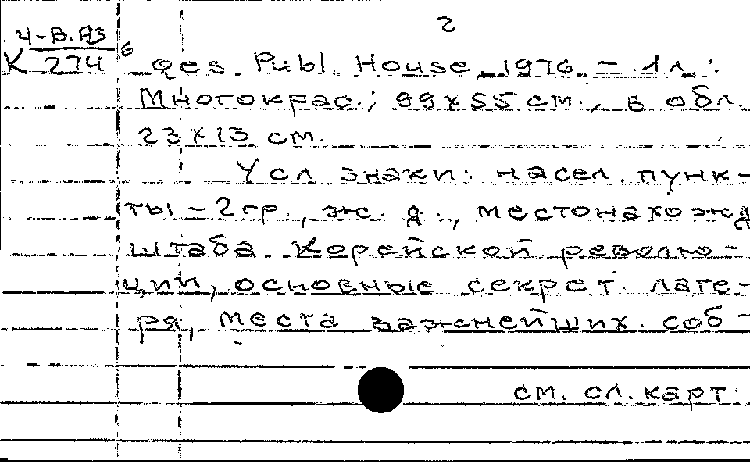 2
4-В.Яз
К 274 6
ges Publ. House, 1976. – 1 л.:
многокрас.; 99×55 см., в обл.
23×13 см.
Усл знаки: насел. пунк-
ты – 2 гр., ж. д., местонахожд
штаба Корейской револю-
ции, основные секрет. лаге-
ря, места важнейших соб-
см. сл. карт.